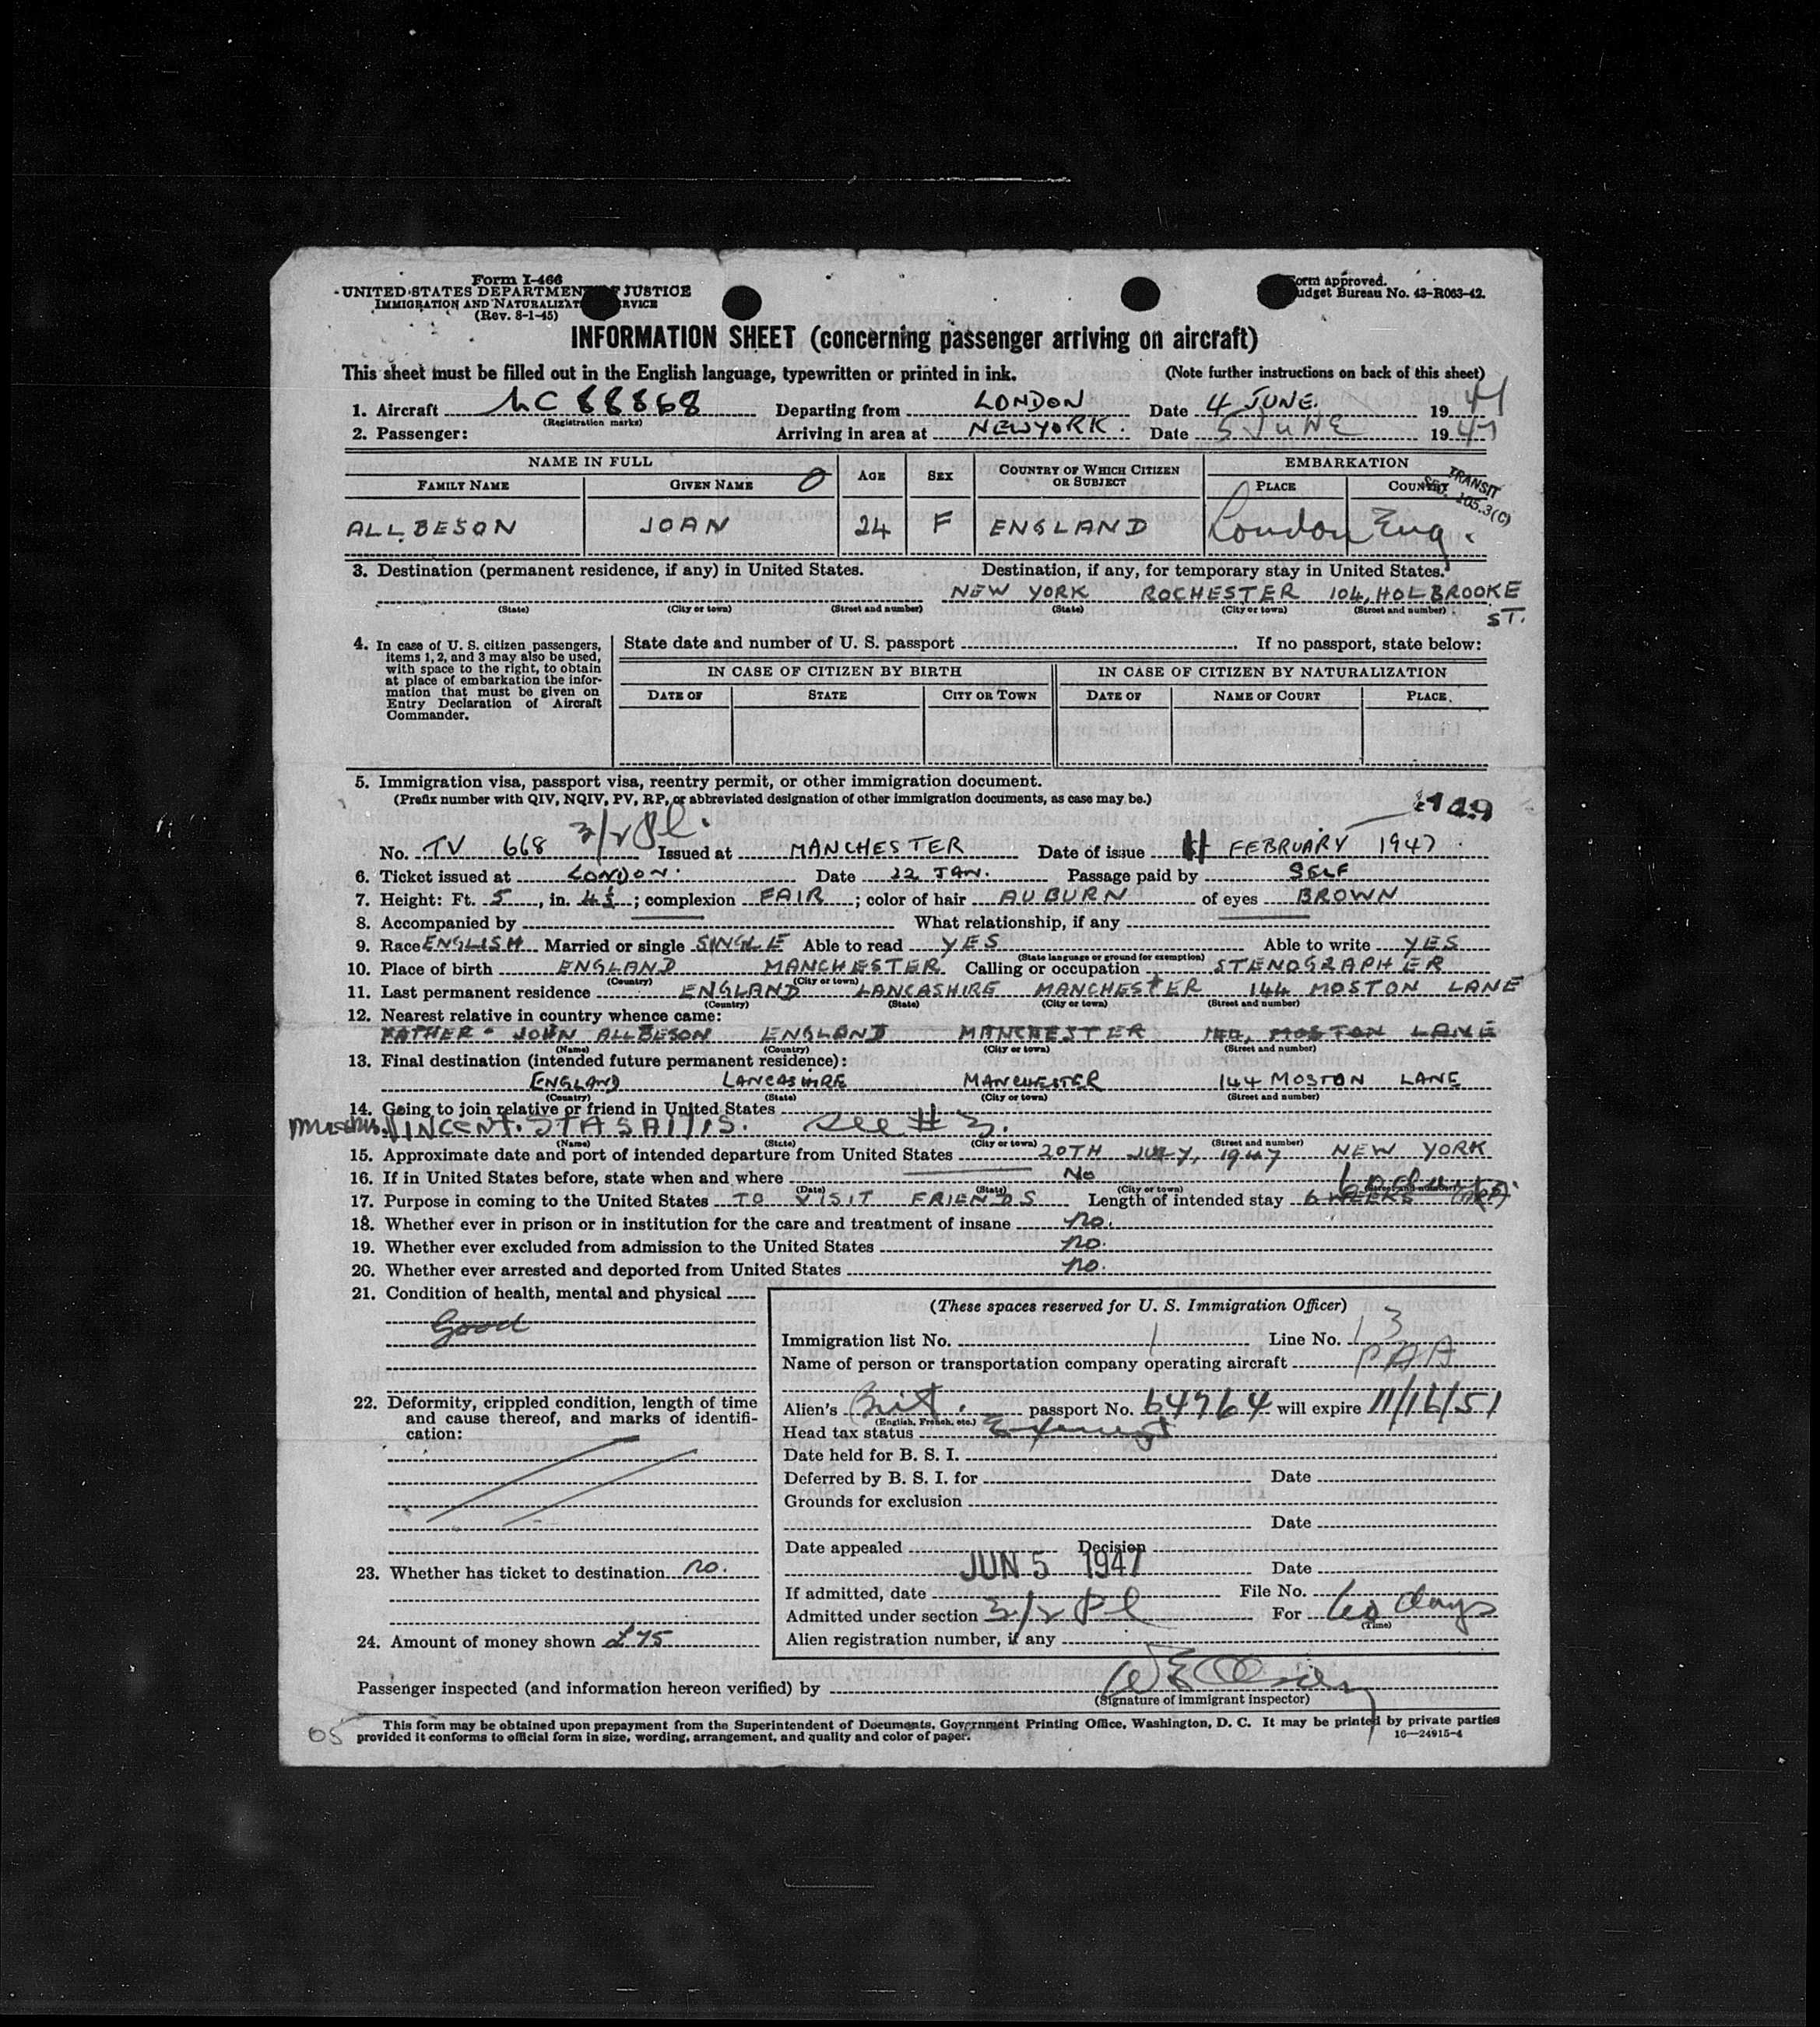 Form I-466
UNITED STATES DEPARTMENT OF JUSTICE
IMMIGRATION AND NATURALIZATION SERVICE
(Rev. 8-1-45)
Form approved.
Budget Bureau No. 43-R063-42.
INFORMATION SHEET (concerning passenger arriving on aircraft)
This sheet must be filled out in the English language, typewritten or printed in ink. (Note further instructions on back of this sheet)
1. Aircraft NC 88868 Departing from LONDON Date 4 JUNE. 1947
(Registration marks)
2. Passenger: Arriving in area at NEW YORK. Date 5 JUNE 1947
NAME IN FULL AGE SEX COUNTRY OF WHICH CITIZEN OR SUBJECT EMBARKATION
FAMILY NAME GIVEN NAME PLACE COUNTRY
TRANSIT
SEC. 105.3(C)
ALLBESON JOAN 24 F ENGLAND London Eng.
3. Destination (permanent residence, if any) in United States. Destination, if any, for temporary stay in United States.
NEW YORK ROCHESTER 104, HOLBROOKE ST.
(State) (City or town) (Street and number) (State) (City or town) (Street and number)
4. In case of U. S. citizen passengers, items 1, 2, and 3 may also be used, with space to the right, to obtain at place of embarkation the information that must be given on Entry Declaration of Aircraft Commander.
State date and number of U. S. passport If no passport, state below:
IN CASE OF CITIZEN BY BIRTH IN CASE OF CITIZEN BY NATURALIZATION
DATE OF STATE CITY OR TOWN DATE OF NAME OF COURT PLACE
5. Immigration visa, passport visa, reentry permit, or other immigration document.
(Prefix number with QIV, NQIV, PV, RP, or abbreviated designation of other immigration documents, as case may be.)
No. TV 668 3/2 Pl. Issued at MANCHESTER Date of issue 11 FEBRUARY 1947
6. Ticket issued at LONDON. Date 22 JAN. Passage paid by SELF
7. Height: Ft. 5, in. 4½; complexion FAIR; color of hair AUBURN of eyes BROWN
8. Accompanied by What relationship, if any
9. Race ENGLISH Married or single SINGLE Able to read YES Able to write YES
(State language or ground for exemption)
10. Place of birth ENGLAND MANCHESTER Calling or occupation STENOGRAPHER
(Country) (City or town)
11. Last permanent residence ENGLAND LANCASHIRE MANCHESTER 144 MOSTON LANE
(Country) (State) (City or town) (Street and number)
12. Nearest relative in country whence came:
FATHER - JOHN ALLBESON ENGLAND MANCHESTER 144, MOSTON LANE
(Name) (Country) (City or town) (Street and number)
13. Final destination (intended future permanent residence):
ENGLAND LANCASHIRE MANCHESTER 144 MOSTON LANE
(Country) (State) (City or town) (Street and number)
14. Going to join relative or friend in United States
VINCENT STASAITIS. See # 3.
(Name) (State) (City or town) (Street and number)
15. Approximate date and port of intended departure from United States 20TH JULY, 1947 NEW YORK
16. If in United States before, state when and where No
(Date) (State) (City or town) (Street and number)
60 days
17. Purpose in coming to the United States TO VISIT FRIENDS Length of intended stay 6 WEEKS
18. Whether ever in prison or in institution for the care and treatment of insane no.
19. Whether ever excluded from admission to the United States no.
20. Whether ever arrested and deported from United States no.
21. Condition of health, mental and physical
Good
22. Deformity, crippled condition, length of time and cause thereof, and marks of identification:
23. Whether has ticket to destination no.
24. Amount of money shown £75
(These spaces reserved for U. S. Immigration Officer)
Immigration list No. 1 Line No. 13
Name of person or transportation company operating aircraft PAA
Alien's Brit. passport No. 64764 will expire 11/16/51
(English, French, etc.)
Head tax status Exempt
Date held for B. S. I.
Deferred by B. S. I. for Date
Grounds for exclusion
Date
Date appealed Decision
JUN 5 1947 Date
If admitted, date File No.
Admitted under section 3/2 Pl For 60 days
(Time)
Alien registration number, if any
Passenger inspected (and information hereon verified) by
(Signature of immigrant inspector)
05
This form may be obtained upon prepayment from the Superintendent of Documents, Government Printing Office, Washington, D. C. It may be printed by private parties
provided it conforms to official form in size, wording, arrangement, and quality and color of paper.
16—24915-4